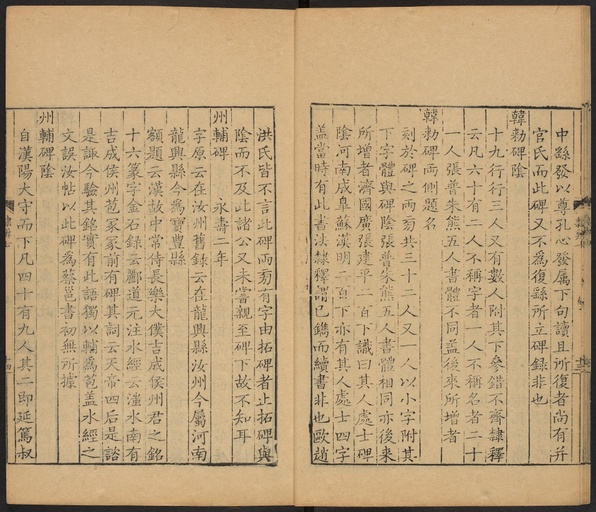 中繇發以尊孔心發属下句讀且所復者尚有幷
官氏而此碑又不為復繇所立碑録非也
韓勑碑陰
十九行行三人又有數人附其下參錯不齊隷釋
云凡六十有二人不稱字者一人不稱名者二十
一人張普朱熊五人書體不同盖後來所增者
韓勑碑兩側題名
刻於碑之兩旁共三十二人又一人以小字附其
下字體與碑陰張普朱熊五人書體相同亦後來
所增者濟國廣張建平二百下識曰其人處士碑
陰河南成臯蘇漢明二百下亦有其人處士四字
盖當時有此書法隷釋謂已鐫而續書非也歐趙
洪氏皆不言此碑兩旁有字由拓碑者止拓碑與
陰而不及此諸公又未嘗親至碑下故不知耳
州輔碑 永壽二年
字原云在汝州舊録云在龍興縣汝州今屬河南
龍興縣今為寶豊縣
額題云漢故中常侍長樂太僕吉成侯州君之銘
十六篆字金石録云酈道元注水經云滍水南有
吉成侯州苞冢冢前有碑其詞云天帝四后是諮
是諏今驗其銘實有此語獨以輔為苞盖水經之
文誤汝帖以此碑為蔡邕書初無所據
州輔碑陰
自漢陽大守而下凡四十有九人其二即延篤叔